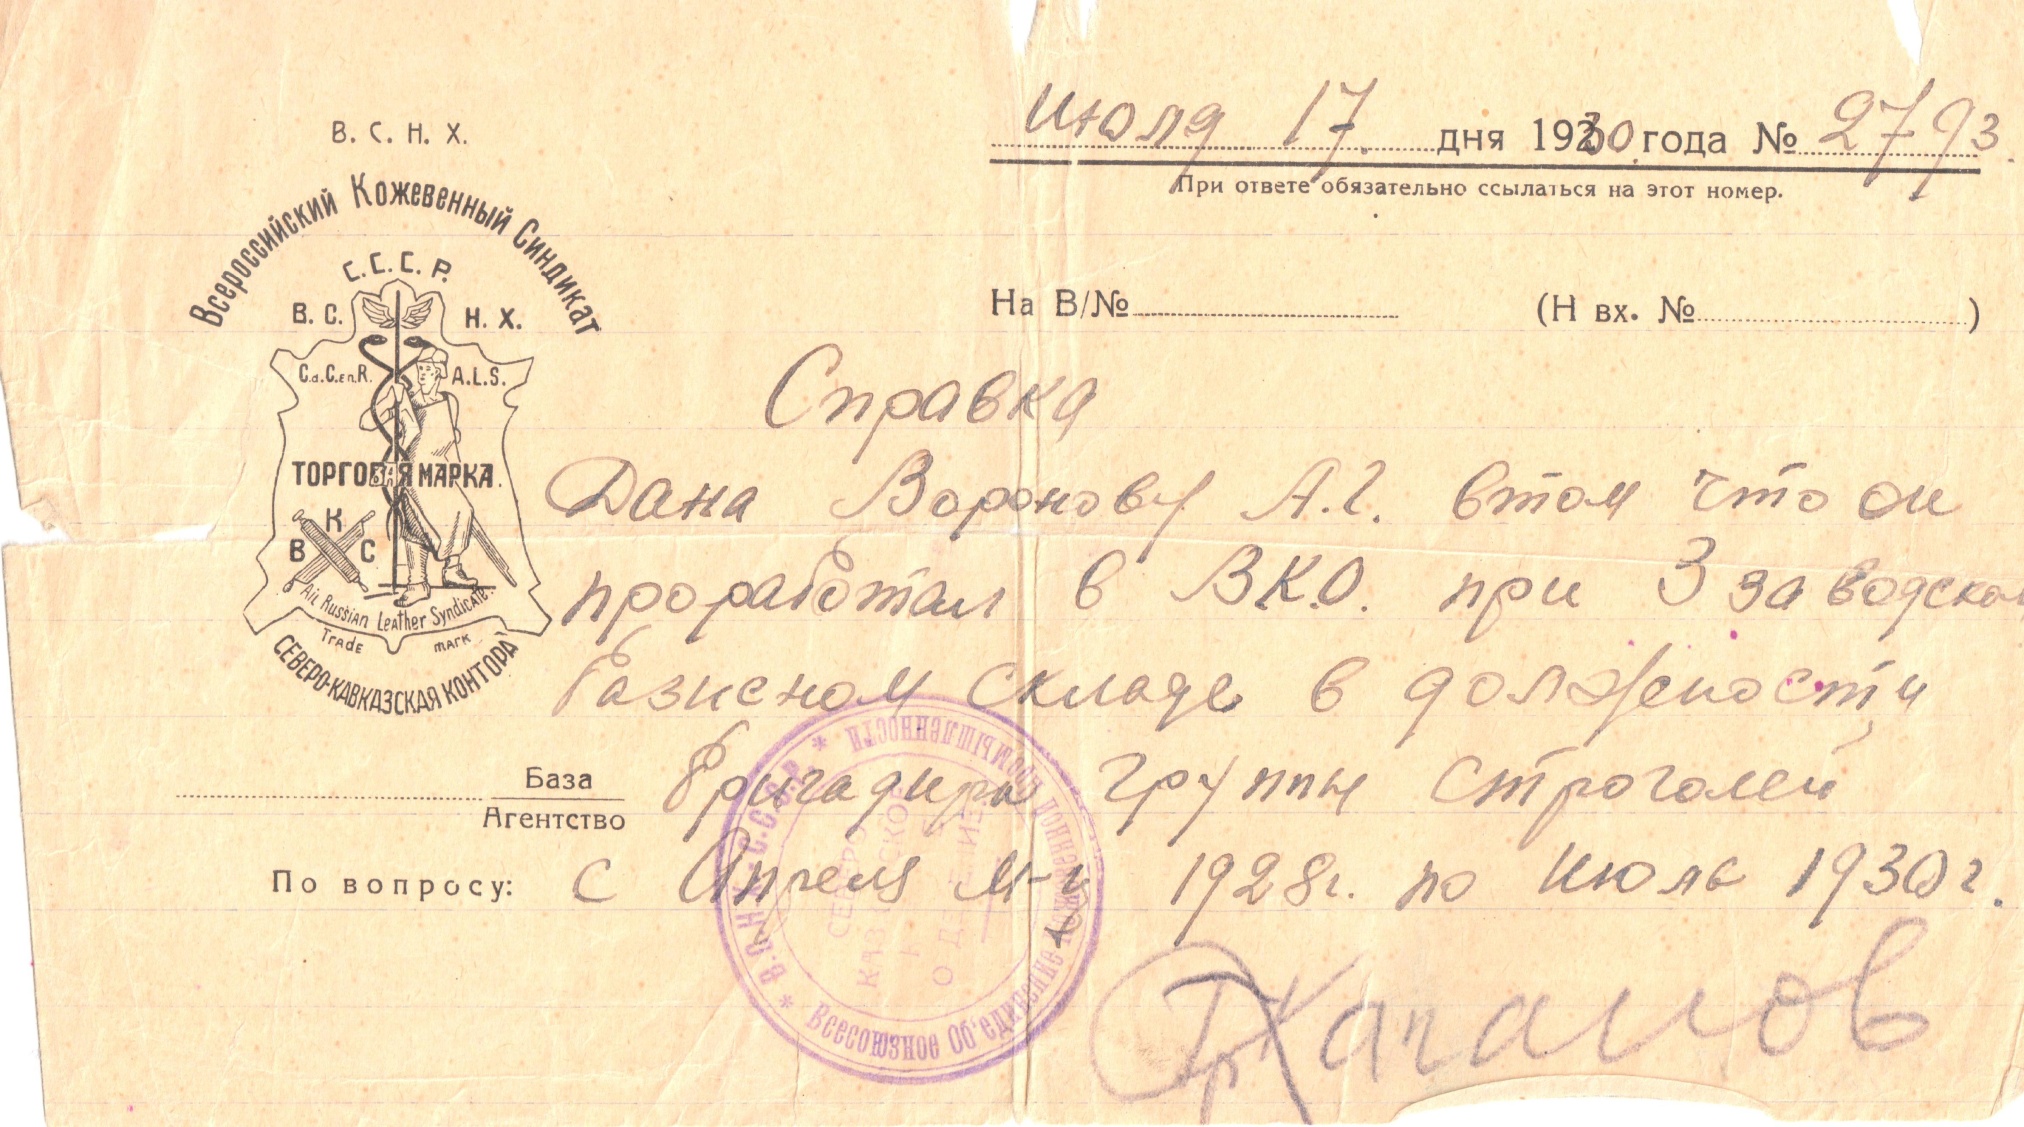 В. С. Н. Х.
Всероссийский Кожевенный Синдикат
С. С. С. Р.
В. С. Н. Х.
C.d.C.en.R. A.L.S.
ТОРГОВАЯ МАРКА.
В К С
All Russian Leather Syndicate.
Trade mark
СЕВЕРО-КАВКАЗСКАЯ КОНТОРА
Июля 17. дня 1930. года № 2793.
При ответе обязательно ссылаться на этот номер.
На В/№ (Н вх. № )
Справка
Дана Воронову А.Г. в том что он
проработал в В.К.О. при 3 заводском
базисном складе в должности
База
Агентство
бригадира группы строгалей
По вопросу:
с Апреля м-ц 1928г. по Июль 1930г.
В.С.Н.Х-С.С.С.Р. * Всесоюзное Об'единение кожевенной промышленности *
СЕВЕРО
КАВКАЗСКОЕ
ОТДЕЛЕНИЕ